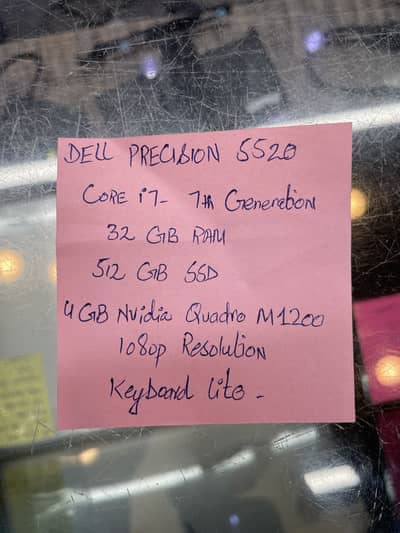 DELL PRECISION 5520
CORE i7- 7th Generation
32 GB RAM
512 GB SSD
4GB Nvidia Quadro M1200
1080p Resolution
Keyboard lite -